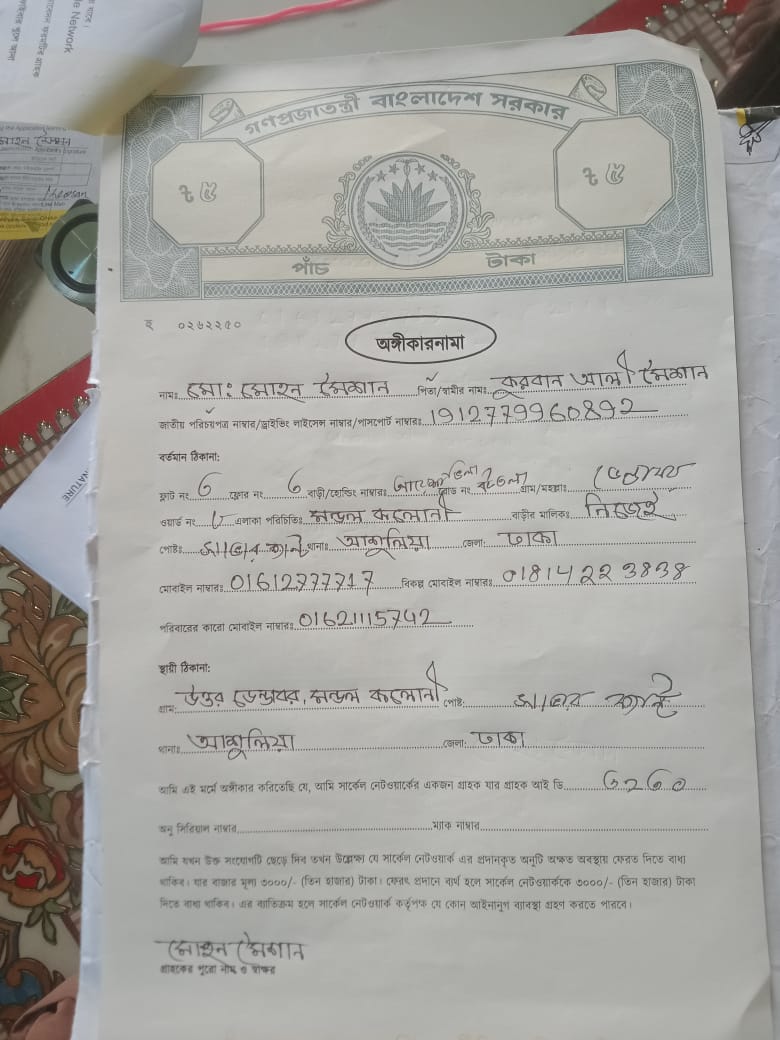 le Network
গণপ্রজাতন্ত্রী বাংলাদেশ সরকার
৳ ৫
৳ ৫
পাঁচ টাকা
ই ০২৬২২৫০
অঙ্গীকারনামা
নামঃ মোঃ মোহন মৈশান পিতা/স্বামীর নামঃ কুরবান আলী মৈশান
জাতীয় পরিচয়পত্র নাম্বার/ড্রাইভিং লাইসেন্স নাম্বার/পাসপোর্ট নাম্বারঃ 1912779960892
বর্তমান ঠিকানা:
ফ্লাট নং ফ্লোর নং বাড়ী/হোল্ডিং নাম্বারঃ রোড নং গ্রাম/মহল্লাঃ
ওয়ার্ড নং এলাকা পরিচিতিঃ মন্ডল কলোনী বাড়ীর মালিকঃ নিজেই
পোষ্টঃ থানাঃ আশুলিয়া জেলা: ঢাকা
মোবাইল নাম্বারঃ 01612777717 বিকল্প মোবাইল নাম্বারঃ 01814223838
পরিবারের কারো মোবাইল নাম্বারঃ 01621115742
স্থায়ী ঠিকানা:
গ্রাম: উত্তর মন্ডল কলোনী পোষ্ট:
থানাঃ আশুলিয়া জেলা: ঢাকা
আমি এই মর্মে অঙ্গীকার করিতেছি যে, আমি সার্কেল নেটওয়ার্কের একজন গ্রাহক যার গ্রাহক আই ডি
অনু সিরিয়াল নাম্বার ম্যাক নাম্বার
আমি যখন উক্ত সংযোগটি ছেড়ে দিব তখন উল্লেখ্য যে সার্কেল নেটওয়ার্ক এর প্রদানকৃত অনুটি অক্ষত অবস্থায় ফেরত দিতে বাধ্য
থাকিব। যার বাজার মূল্য ৩০০০/- (তিন হাজার) টাকা। ফেরৎ প্রদানে ব্যর্থ হলে সার্কেল নেটওয়ার্ককে ৩০০০/- (তিন হাজার) টাকা
দিতে বাধ্য থাকিব। এর ব্যতিক্রম হলে সার্কেল নেটওয়ার্ক কর্তৃপক্ষ যে কোন আইনানুগ ব্যবস্থা গ্রহণ করতে পারবে।
মোহন মৈশান
গ্রাহকের পুরো নাম ও স্বাক্ষর